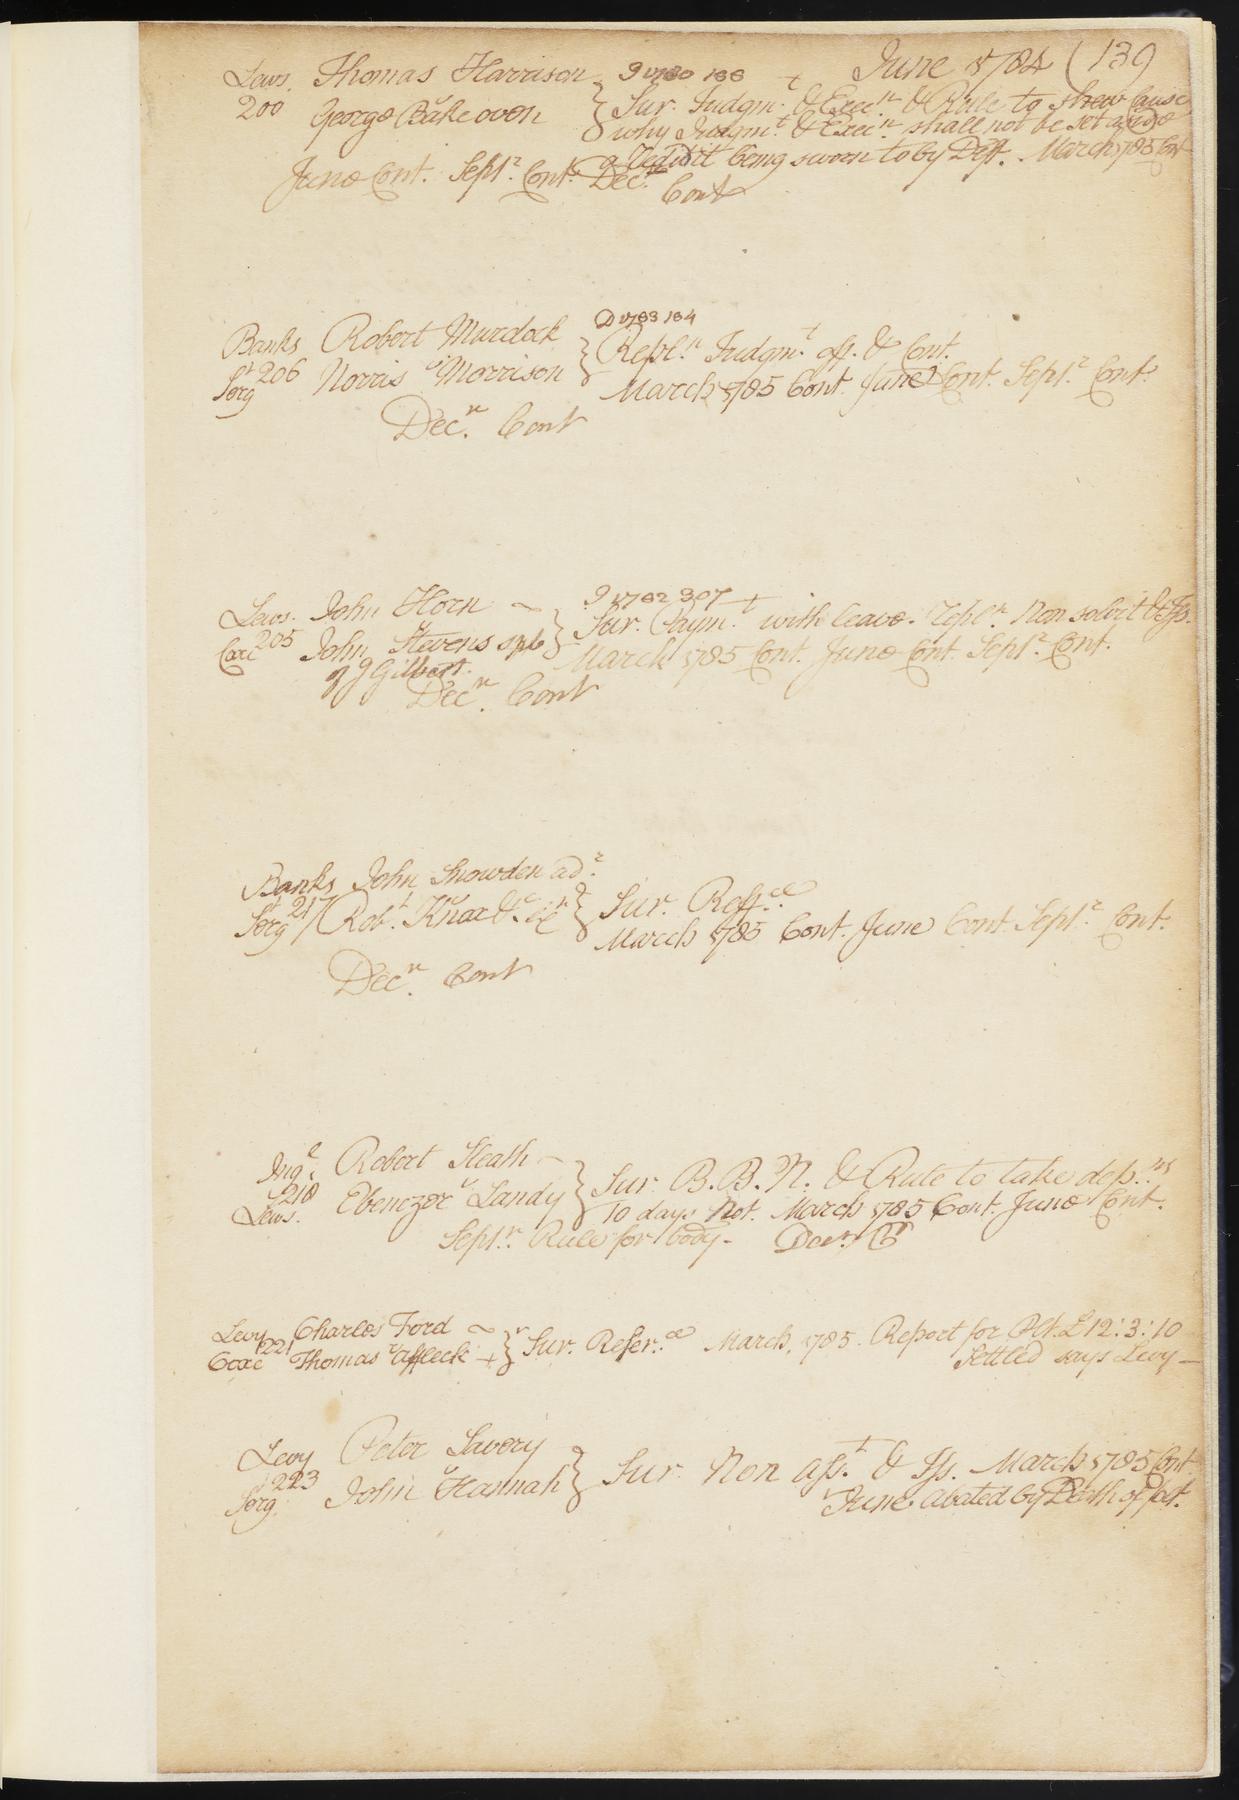 June 1784 (139
Lews. Thomas Harrison 9 1780 166 +
200 v George Bakeoven } Sur. Judgmt. & Execn. & Rule to shew Cause
why Judgmt. & Execn. shall not be set aside
a Credit being sworn to by Deft. March 1785 Cont
June Cont. Septr. Cont. Decr.
Cont
D 1783 164
Banks Robert Murdock } Repln. Judgmt. off. & Cont.
St 206 v
Serg Norris Morrison March 1785 Cont. June Cont. Septr. Cont.
Decr. Cont
9 1782 307 +
Lews. John Horn } Sur. Paymt. with leave. Repln. Non solvit & Iss.
Coxe 205 John Stevens spb March 1785 Cont. June Cont. Septr. Cont.
of J Gilbert.
Decr. Cont
Banks John Snowden adr.
St 217 v } Sur. Reffce.
Serg Robt. Knox &c. March 1785 Cont. June Cont. Septr. Cont.
Decr. Cont
Ingl. Robert Heath } Sur. B. B. N. & Rule to take depns.
218 v
Lews. Ebenezer Landy 10 days Not. March 1785 Cont. June Cont.
Septr. Rule for body - Decr. C
Levy Charles Ford } Sur. Referce. March, 1785. Report for Plt. £12:3:10
221 v
Coxe Thomas Affleck + Settled says Levy —
Levy Peter Savery } Sur. Non asst. & Iss. March 1785 Cont
223 v
Serg. John Hannah June. abated by Death of plt.